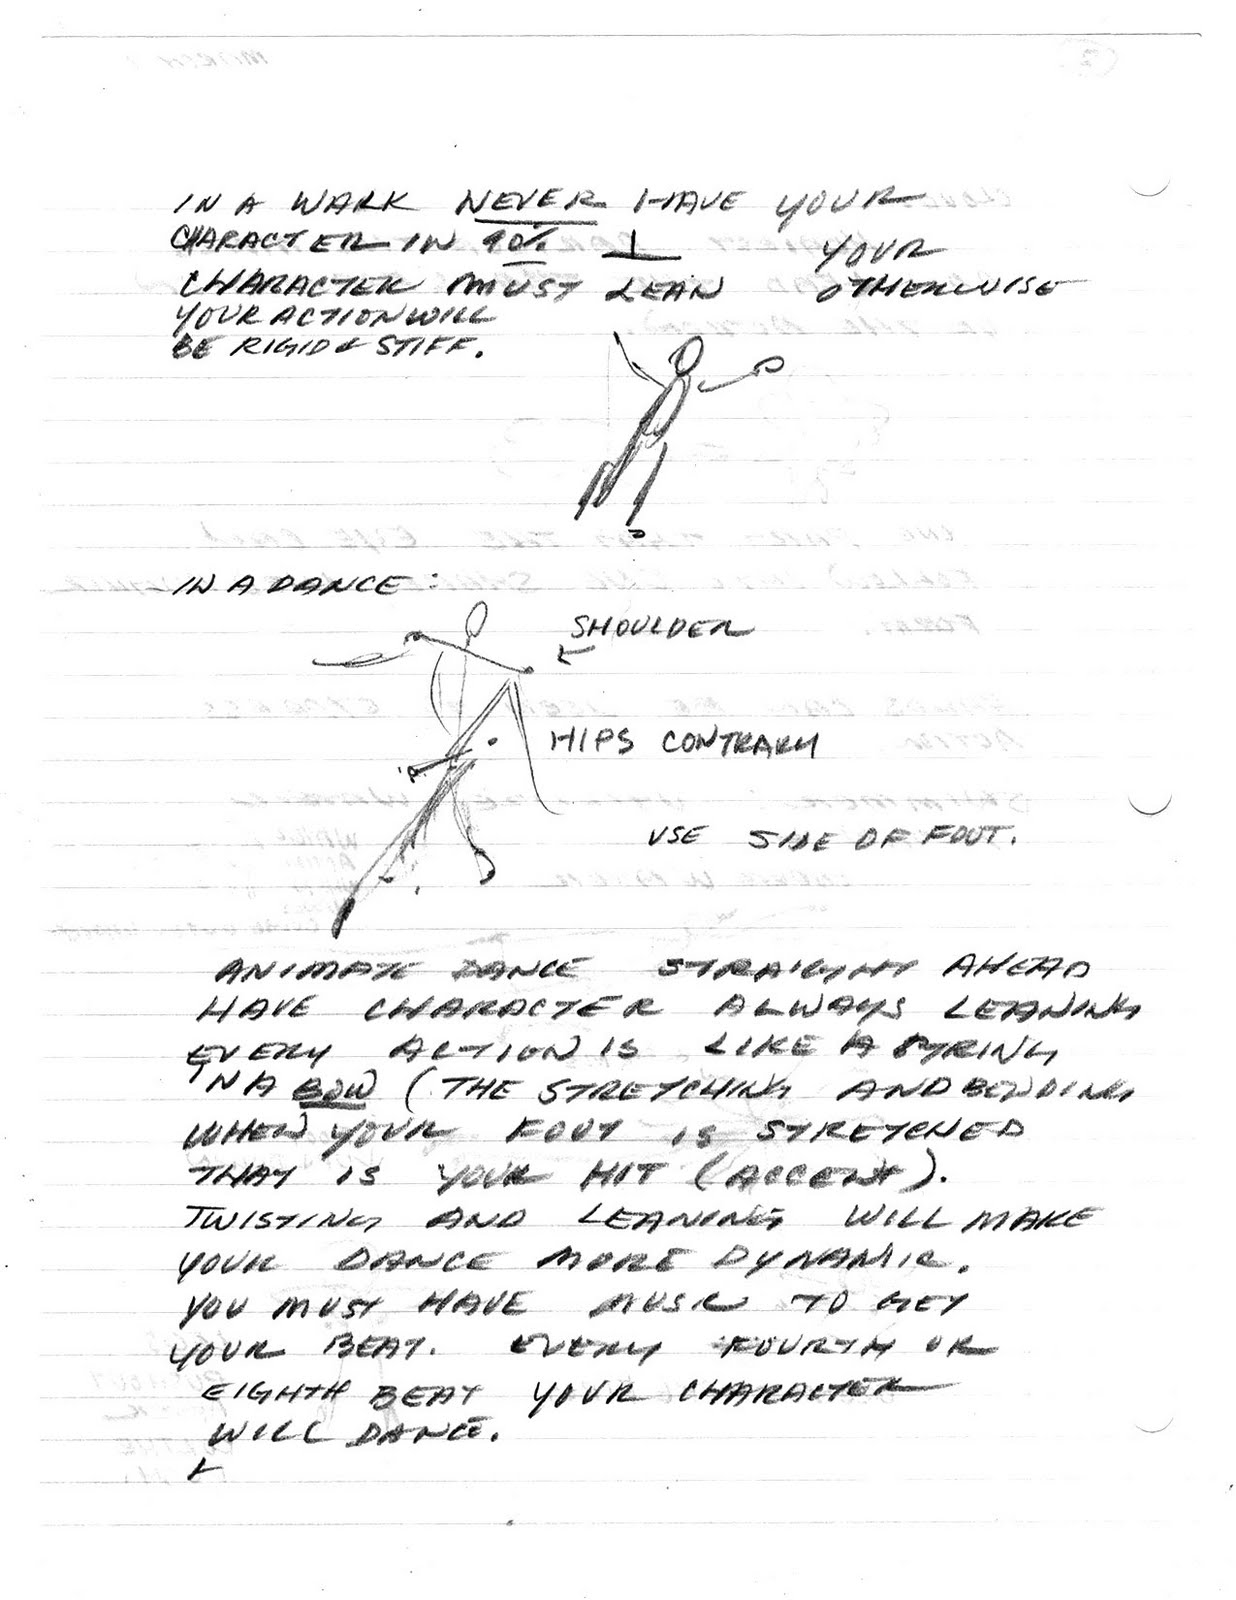 IN A WALK NEVER HAVE YOUR
CHARACTER IN 90% ⊥ YOUR
CHARACTER MUST LEAN OTHERWISE
YOUR ACTION WILL
BE RIGID & STIFF.
IN A DANCE:
SHOULDER
←
HIPS CONTRARY
USE SIDE OF FOOT.
ANIMATE DANCE STRAIGHT AHEAD
HAVE CHARACTER ALWAYS LEANING
EVERY ACTION IS LIKE A STRING
IN A BOW (THE STRETCHING AND BENDING
WHEN YOUR FOOT IS STRETCHED
THAT IS YOUR HIT (ACCENT).
TWISTING AND LEANING WILL MAKE
YOUR DANCE MORE DYNAMIC.
YOU MUST HAVE MUSIC TO GET
YOUR BEAT. EVERY FOURTH OR
EIGHTH BEAT YOUR CHARACTER
WILL DANCE.